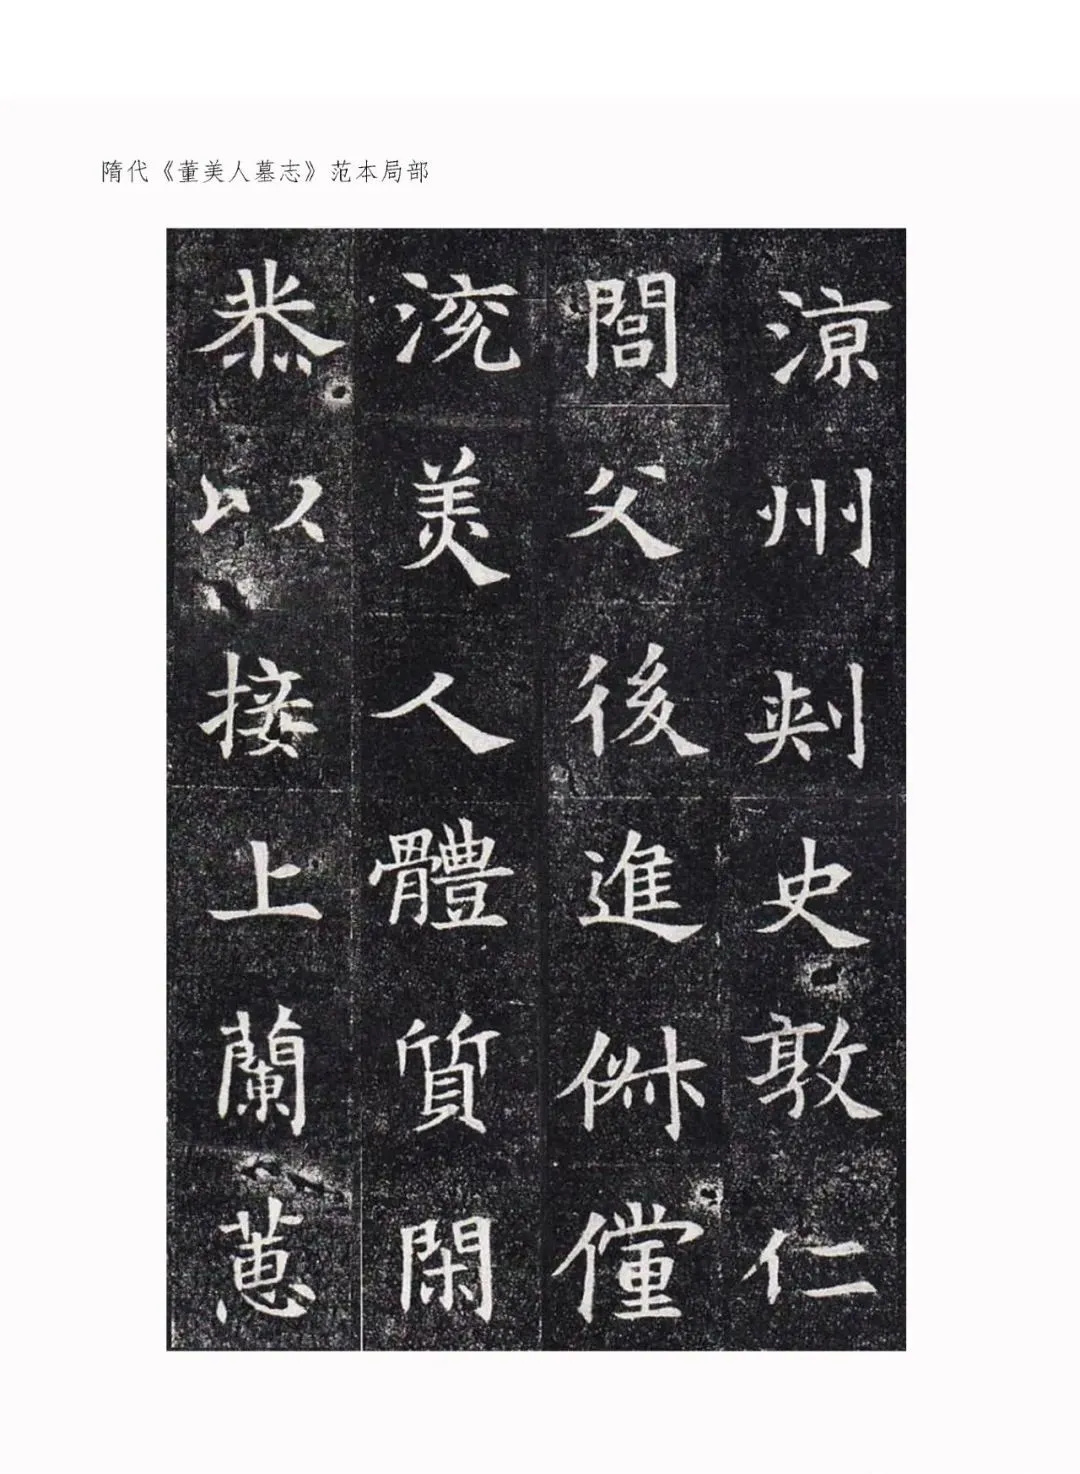 隋代《董美人墓志》范本局部
涼州刾史敦仁
閭父後進俶儻
流美人體質閑
恭以接上蘭蕙